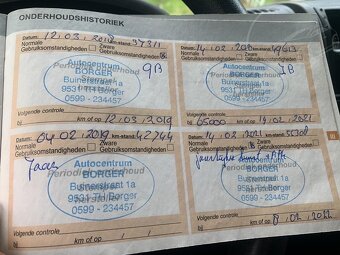 ONDERHOUDSHISTORIEK
Datum: 12.03.2018 km-stand: 37311
Normale Zware
Gebruiksomstandigheden Gebruiksomstandigheden
Periodiek onderhoud
Autocentrum
BORGER
Buinerstraat 1a
9531 TH Borger
0599 - 234457
Volgende controle
bij km of op 12.03.2019
Datum: 14.02.20 km-stand:
Normale Zware
Gebruiksomstandigheden Gebruiksomstandigheden
Periodiek onderhoud
Autocentrum
BORGER
Buinerstraat 1a
9531 TH Borger
0599 - 234457
Volgende controle
bij 65000 km of op 14.02.2021
Datum: 04.02.2019 km-stand: 42744
Normale Zware
Gebruiksomstandigheden Gebruiksomstandigheden
Periodiek onderhoud
Autocentrum
BORGER
Buinerstraat 1a
9531 TH Borger
0599 - 234457
Volgende controle
bij km of op
Datum: 14.02.2021 km-stand:
Normale Zware
Gebruiksomstandigheden Gebruiksomstandigheden
Autocentrum
BORGER
Buinerstraat 1a
9531 TH Borger
0599 - 234457
Volgende controle
bij km of op 8.02.2022